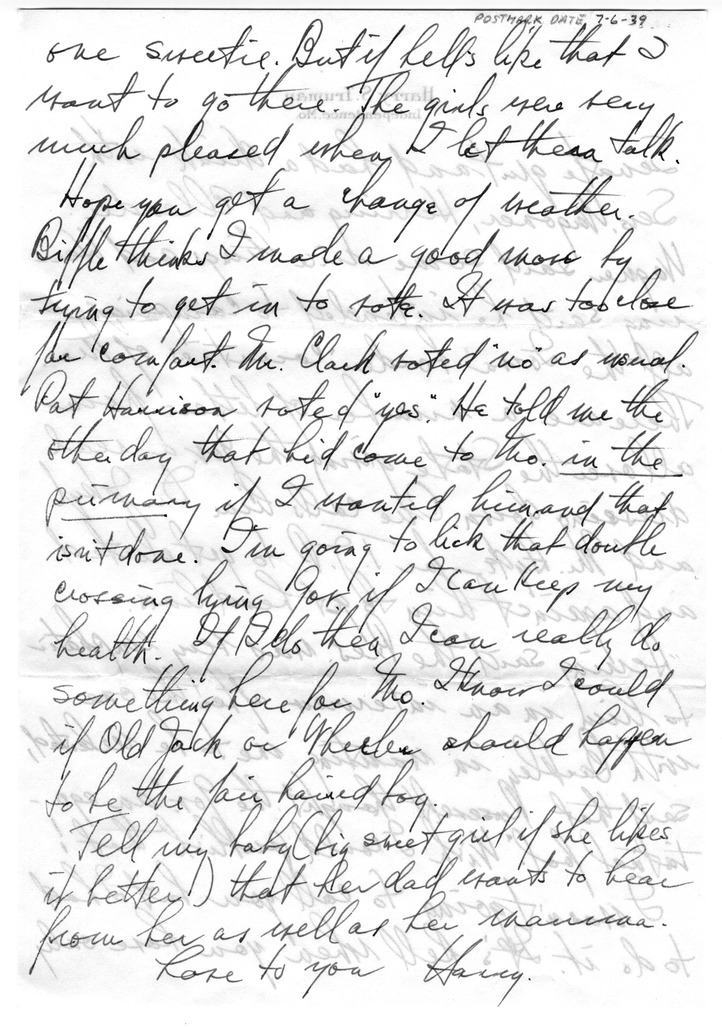 POSTMARK DATE, 7-6-39
one sweetie. But if hell's like that I
want to go there. The girls were very
much pleased when I let them talk.
Hope you get a change of weather.
Biffle thinks I made a good move by
trying to get in to vote. It was too close
for comfort. Mr. Clark voted "no" as usual.
Pat Harrison voted "yes". He told me the
other day that he'd come to Mo. in the
primary if I wanted him and that
isn't done. I'm going to lick that double
crossing lying Gov. if I can keep my
health. If I do then I can really do
something here for Mo. I know I could
if Old Jack or Wheeler should happen
to be the fair haired boy.
Tell my baby (big sweet girl if she likes
it better) that her dad wants to hear
from her as well as her mamma.
Love to you Harry.